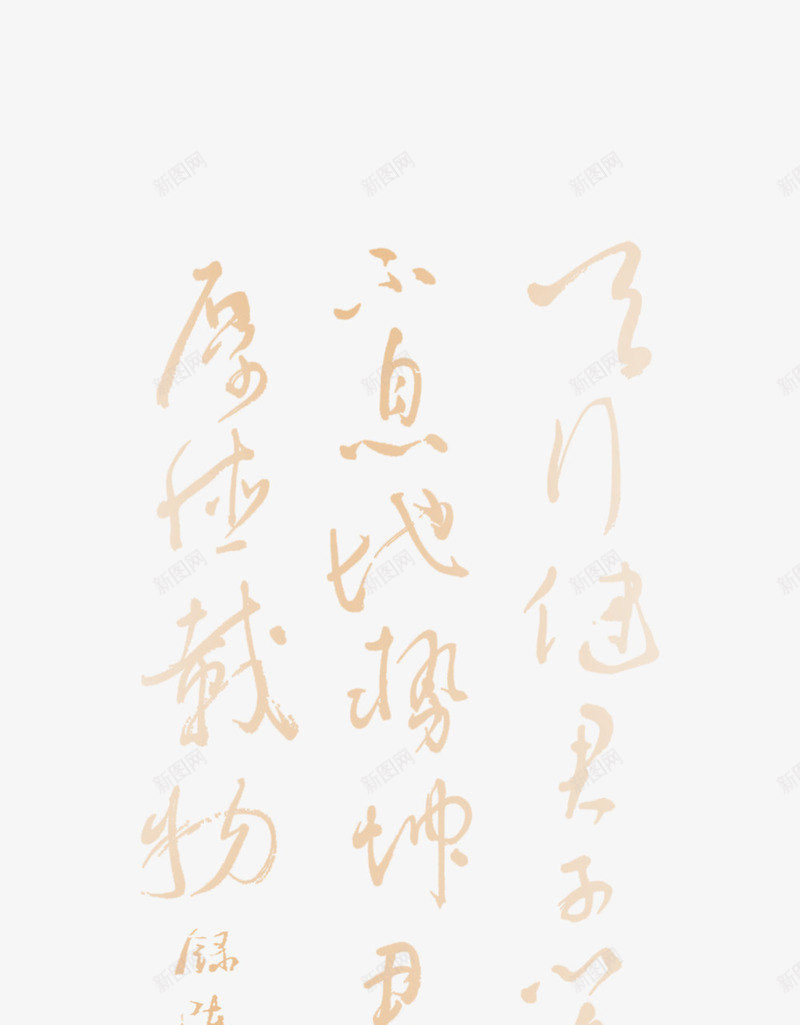 天行健君子
不息地势坤君
厚德載物
錄
新图网